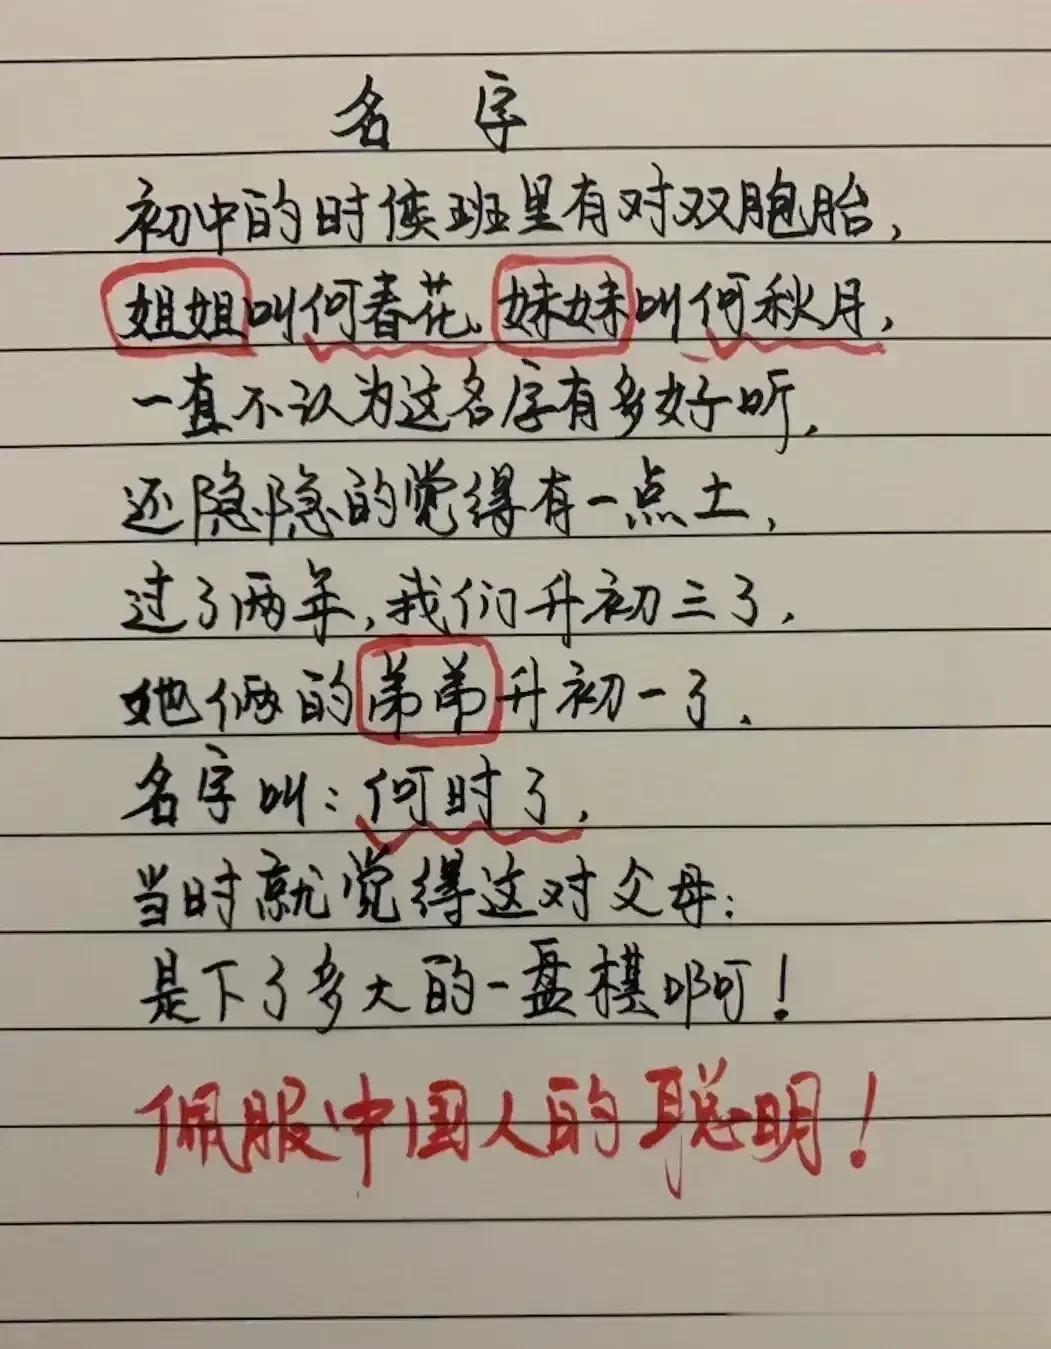 名字
初中的时候班里有对双胞胎,
姐姐叫何春花,妹妹叫何秋月,
一直不认为这名字有多好听,
还隐隐的觉得有一点土,
过了两年,我们升初三了,
她俩的弟弟升初一了、
名字叫:何时了,
当时就觉得这对父母:
是下了多大的一盘棋啊!
佩服中国人的聪明!